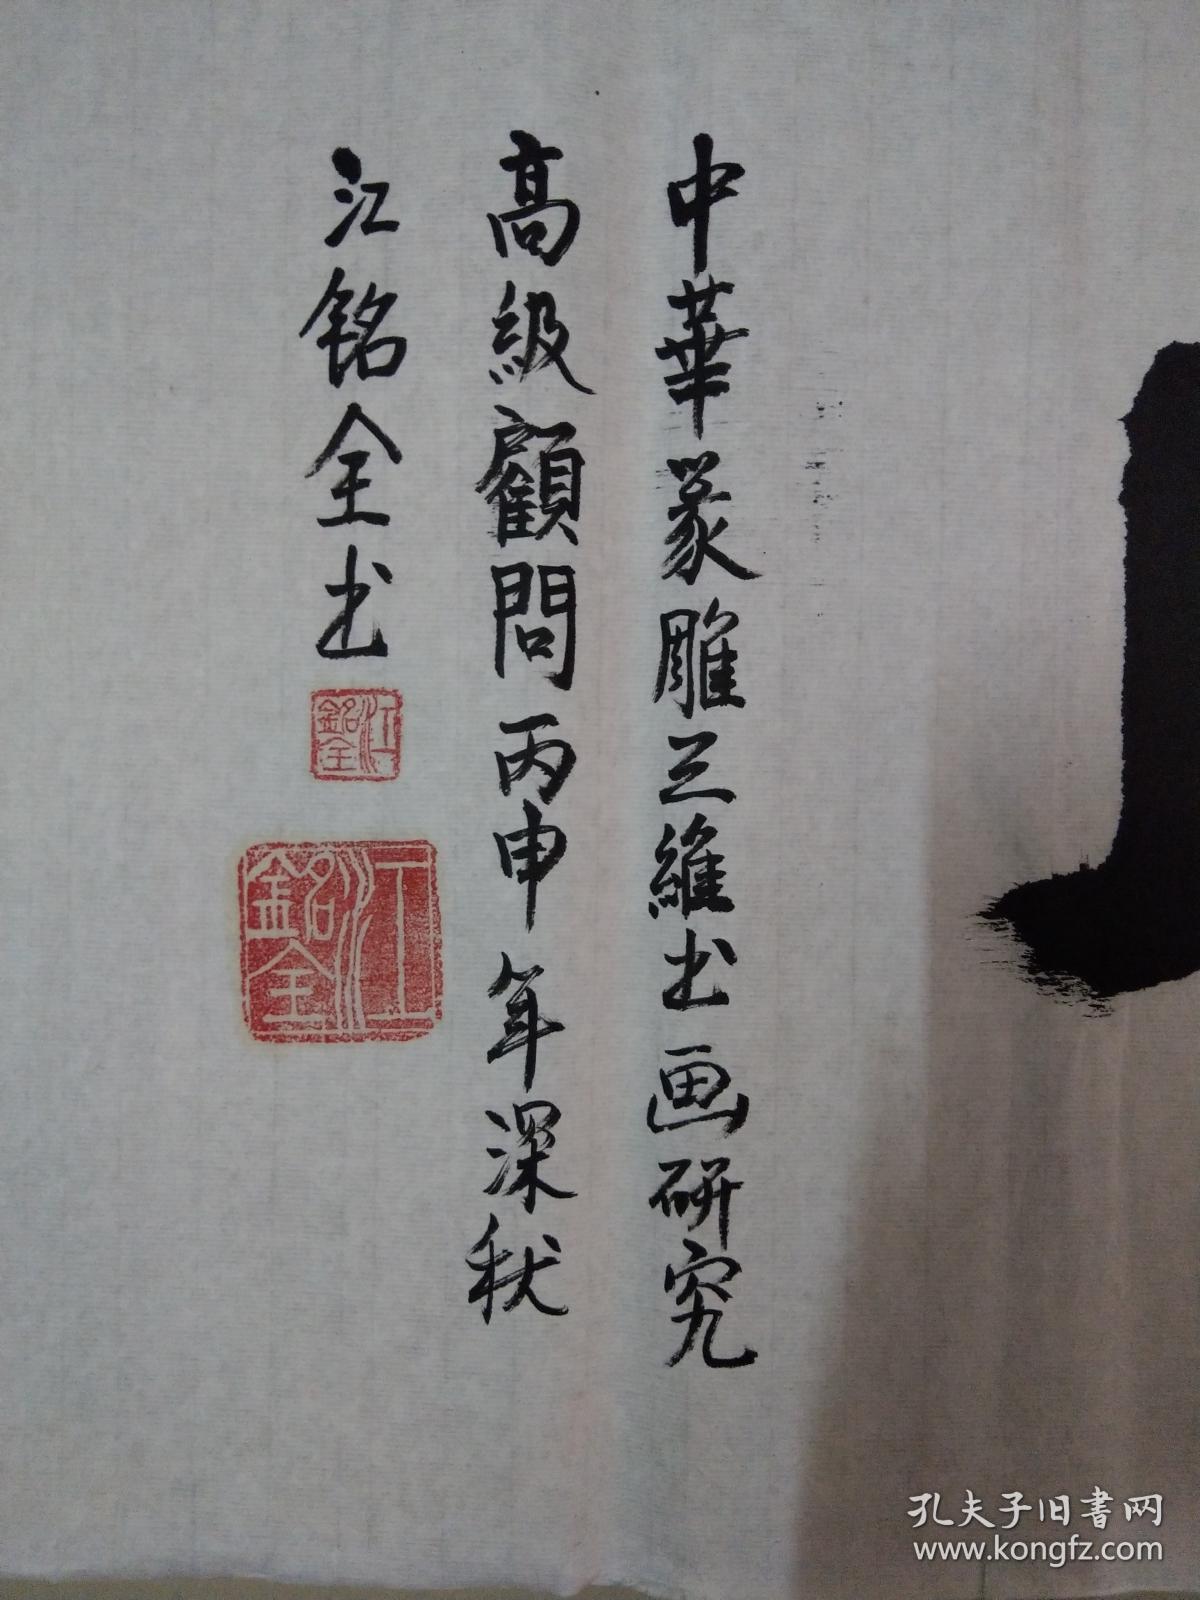 中華篆雕三維书画研究
高級顧問丙申年深秋
江铭全书
江銘全
江銘全
孔夫子旧書网
www.kongfz.com